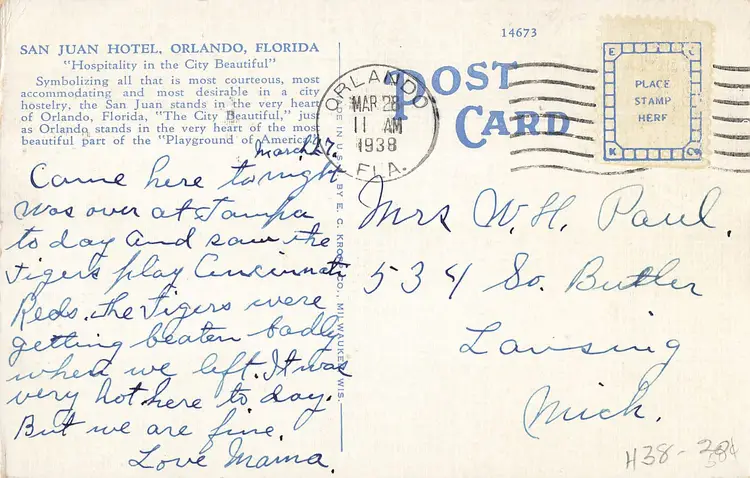 14673
SAN JUAN HOTEL, ORLANDO, FLORIDA
"Hospitality in the City Beautiful"
Symbolizing all that is most courteous, most
accommodating and most desirable in a city
hostelry, the San Juan stands in the very heart
of Orlando, Florida, "The City Beautiful," just
as Orlando stands in the very heart of the most
beautiful part of the "Playground of America."
March 27.
Came here tonight
was over at Tampa
to day and saw the
Tigers play Cincinnati
Reds. the Tigers were
getting beaten badly
when we left. It was
very hot here to day.
But we are fine.
Love Mama.
MADE IN U.S.A. BY E. C. KROPP CO., MILWAUKEE, WIS.
POST
CARD
ORLANDO
MAR 28
11 AM
1938
FLA.
E K K Co
PLACE
STAMP
HERE
Mrs W. H. Paul.
534 So. Butler
Lansing
Mich.
H38-